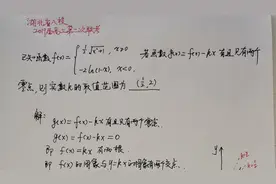 湖北省八校
2019届高三第二次联考
定义函数f(x)={ ½√(x²-1), x≥0
-2ln(1-x), x<0.
若函数g(x)=f(x)-kx有且只有两个
零点,则实数k的取值范围为 (½,2)
解:
g(x)=f(x)-kx有且只有两个零点.
g(x)=f(x)-kx=0
即 f(x)=kx 有两根
即 f(x)的图象与y=kx的图象有两个交点.